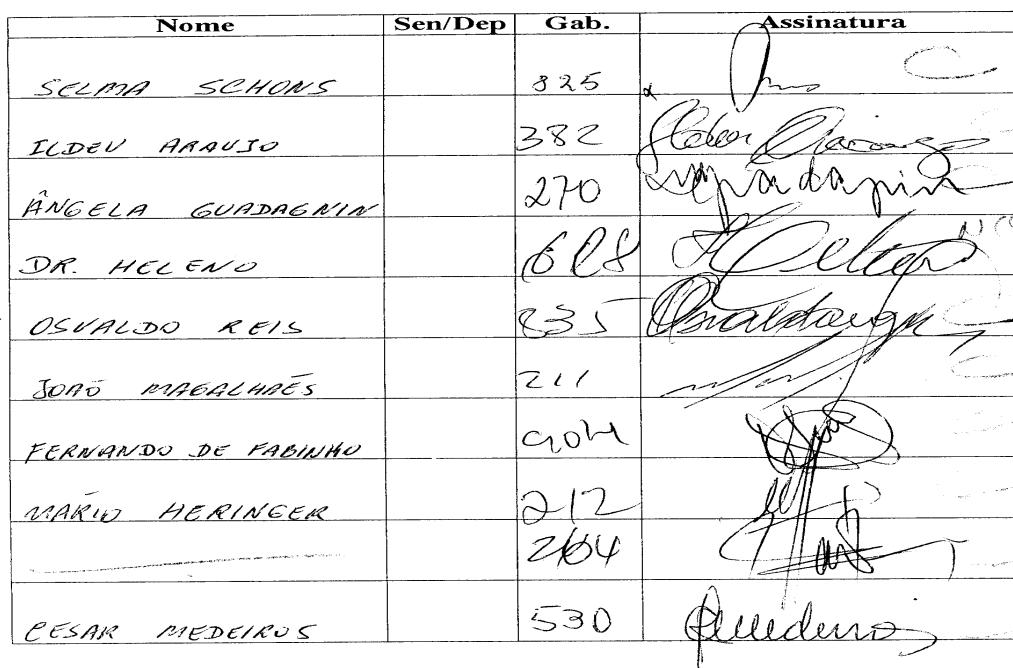 Nome Sen/Dep Gab. Assinatura
SELMA SCHONS 825
ILDEU ARAUJO 382 Ildeu Araujo
ÂNGELA GUADAGNIN 270 Guadagnin
DR. HELENO 628 Heleno
OSVALDO REIS 835
JOAÕ MAGALHAËS 211
FERNANDO DE FABINHO 904
MÁRIO HERINGER 212
264
CESAR MEDEIROS 530 Cmedeiros